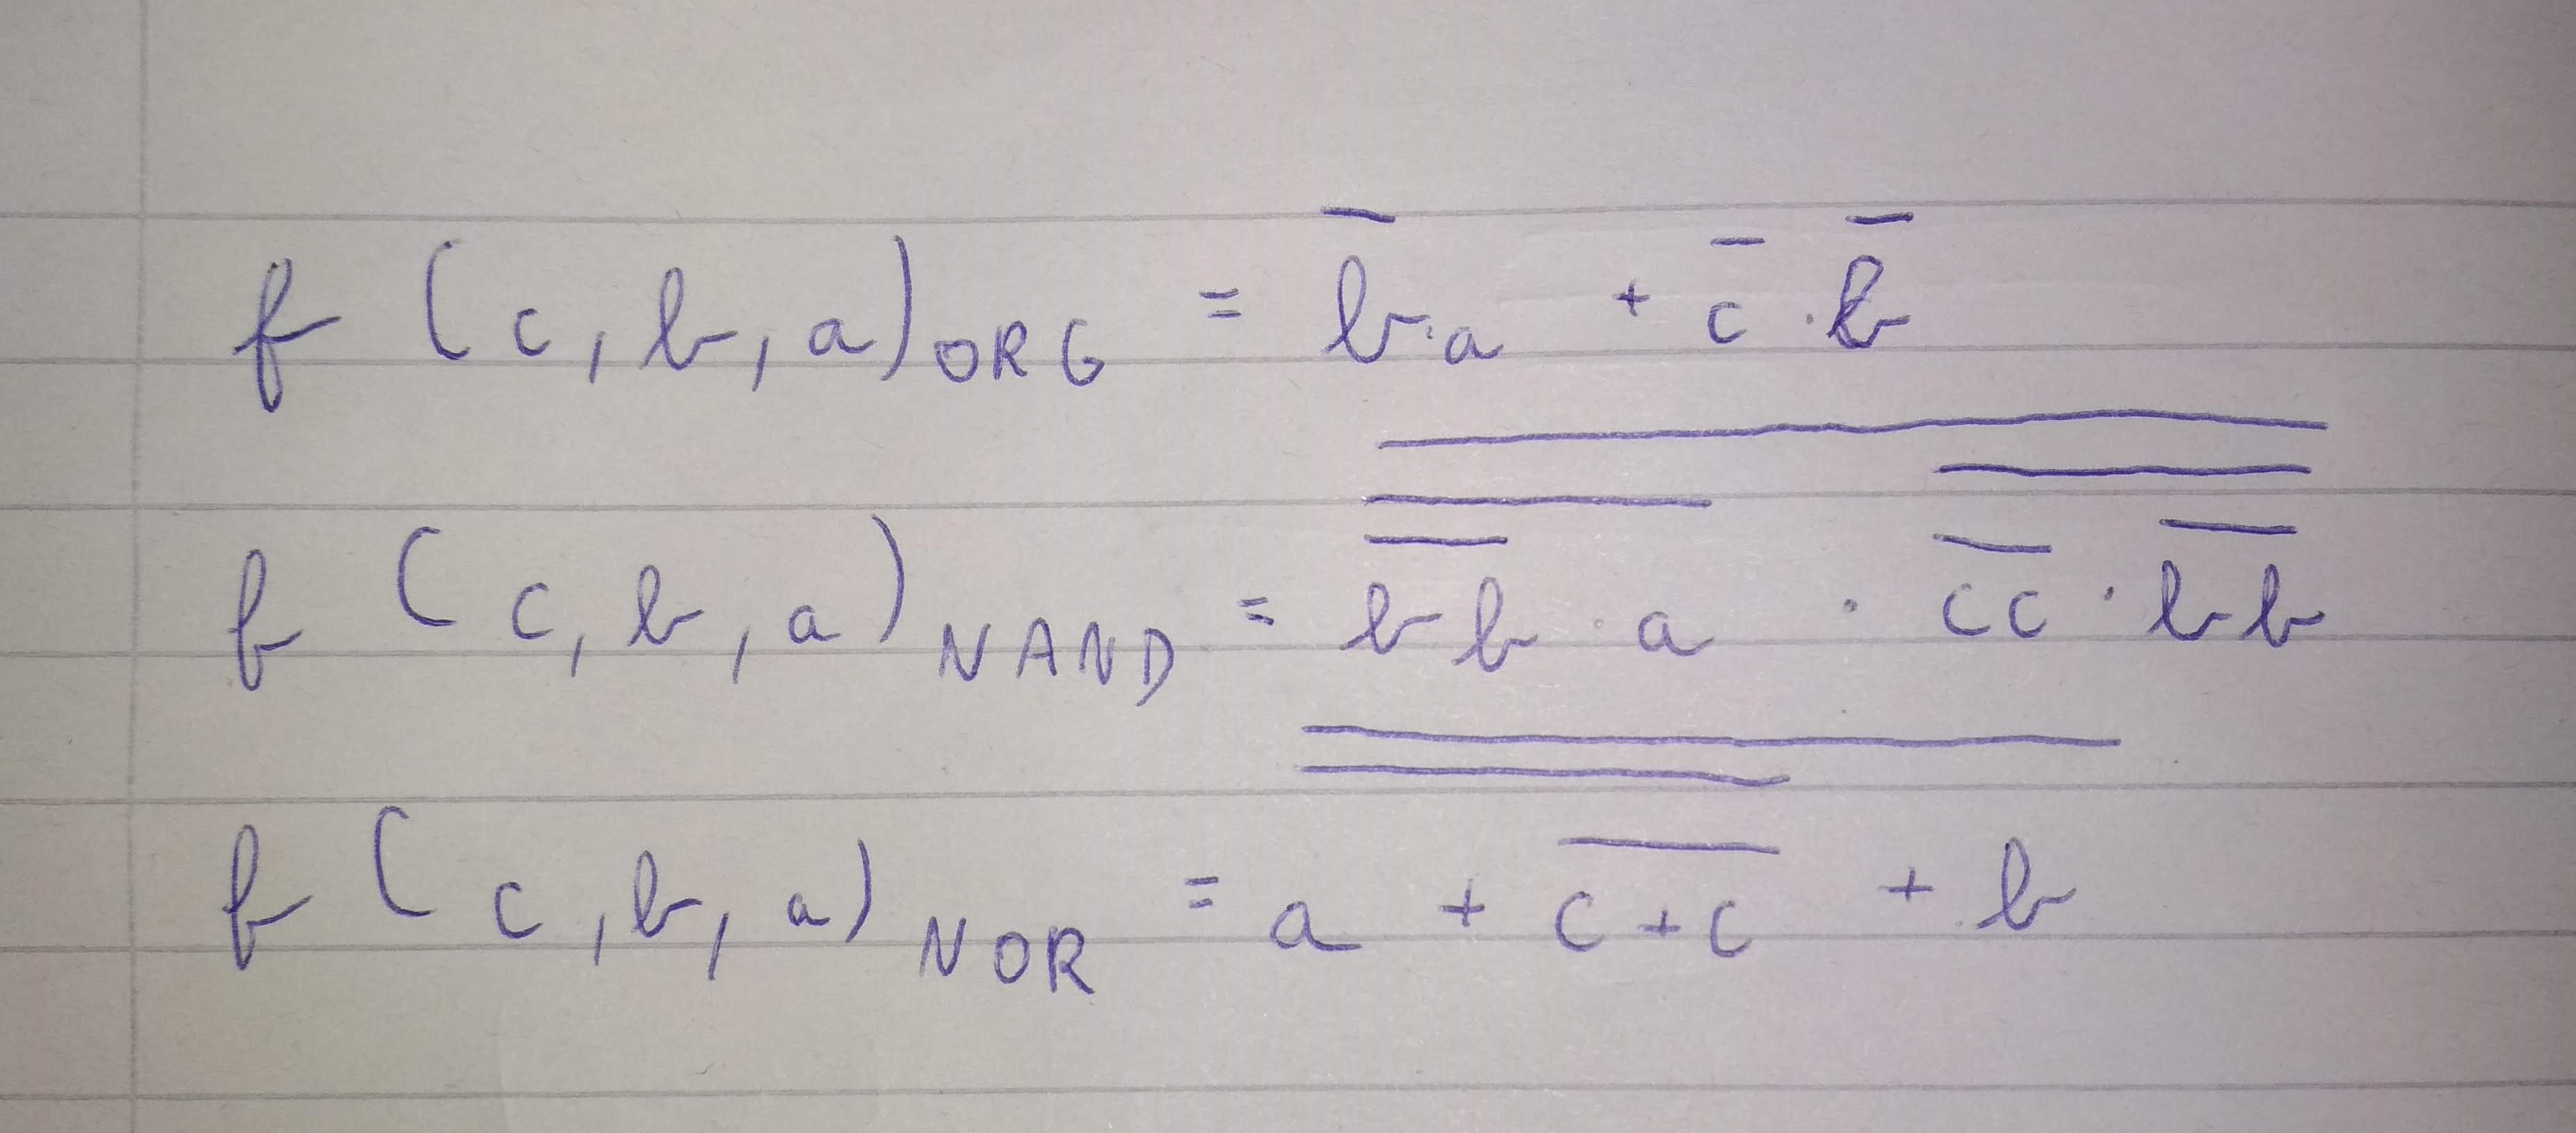 f (c, b, a)_ORG = b̅·a + c̅·b̅
f (c, b, a)_NAND = \overline{\overline{\overline{bb}·a}·\overline{\overline{cc}·\overline{bb}}}
f (c, b, a)_NOR = \overline{\overline{a+\overline{c+c}}+b}